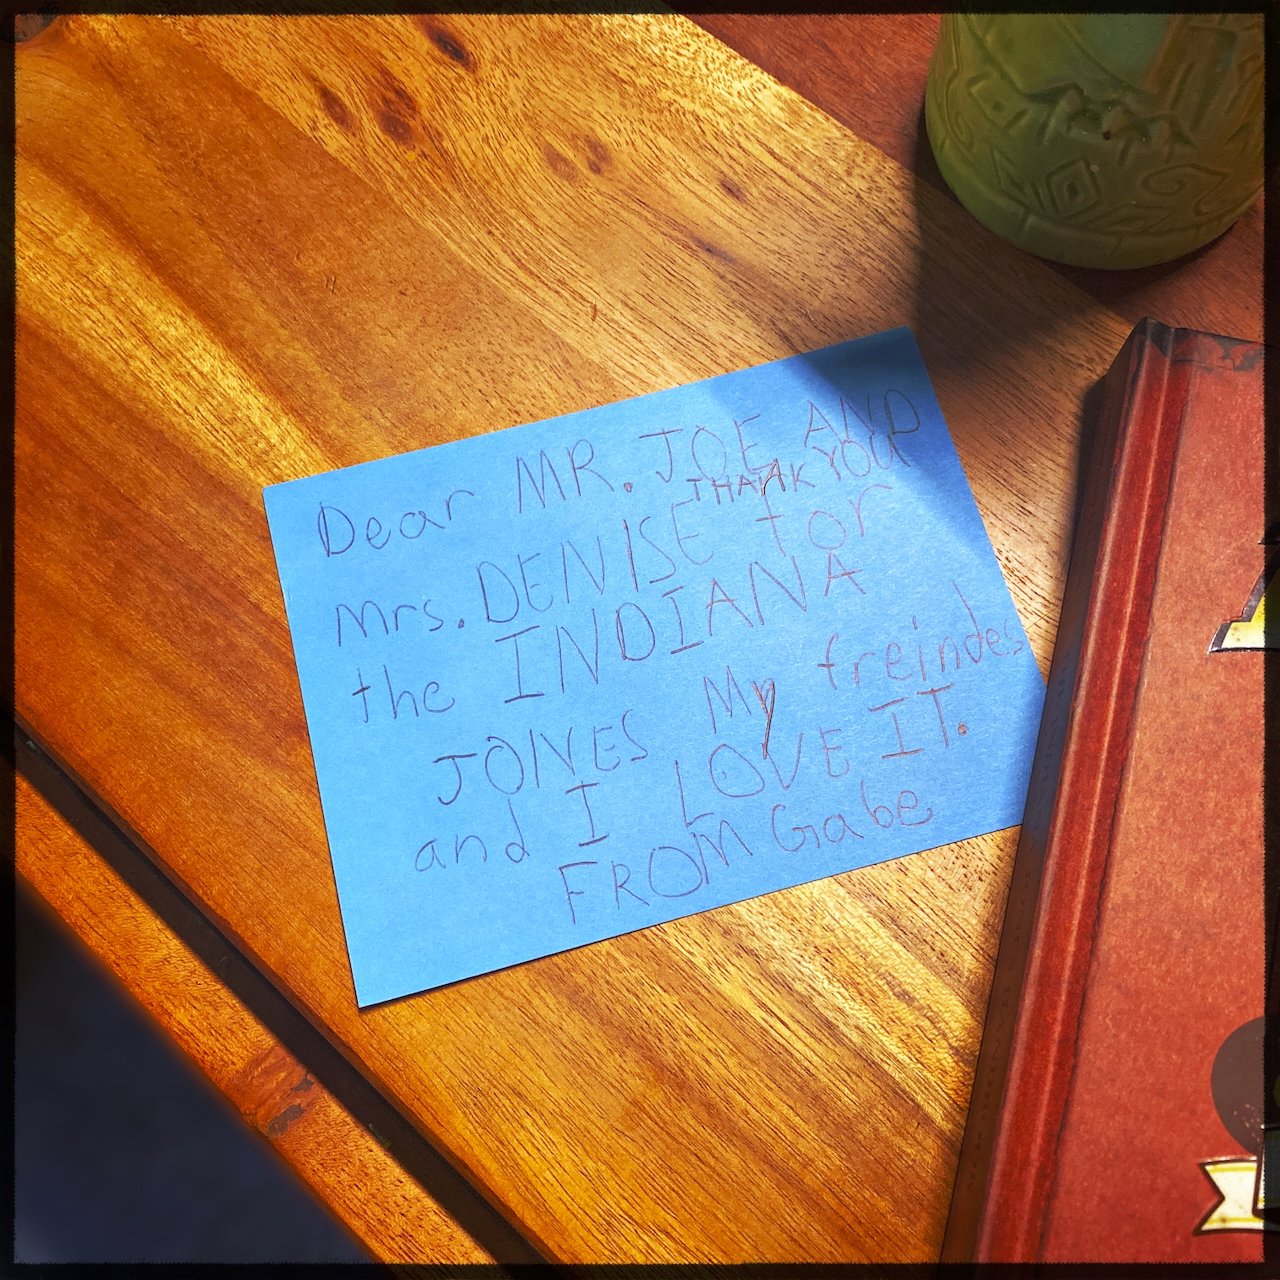 Dear MR. JOE AND
THANK YOU
Mrs. DENISE for
the INDIANA
JONES My freindes
and I LOVE IT.
FROM Gabe